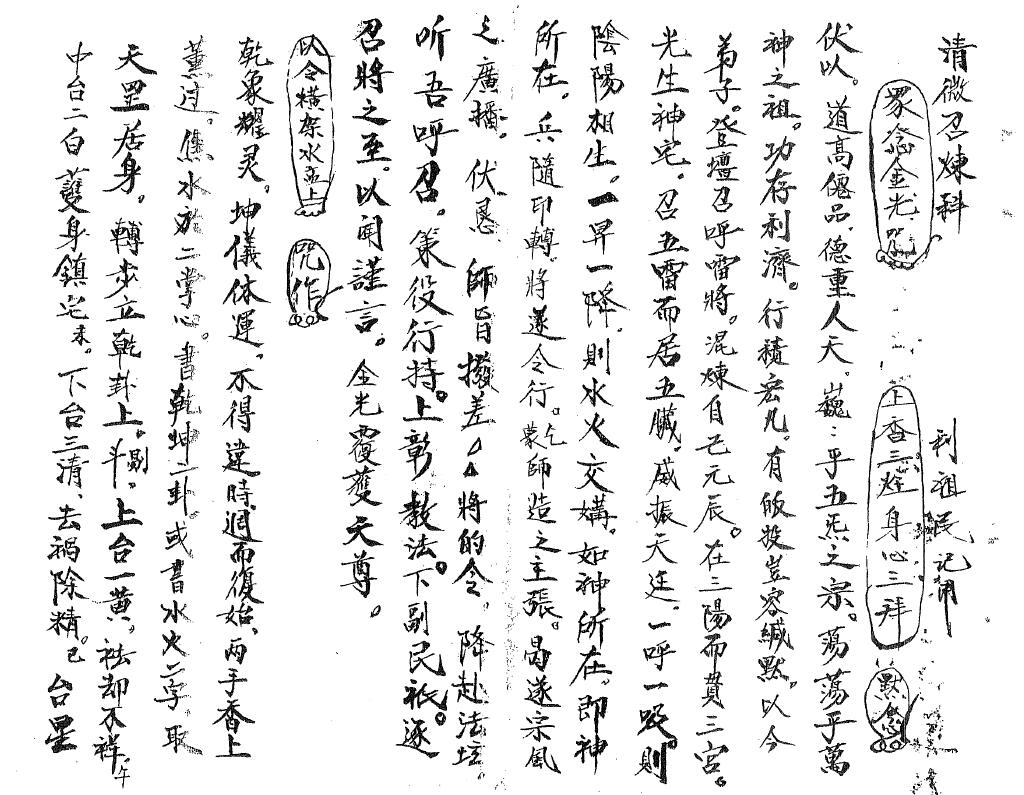 清微召煉科
利祖民記用
眾念金光咒 上香三炷身心三拜 默念
伏以。道高僊品。德重人天。巍：乎五炁之宗。蕩蕩乎萬
神之祖。功存利濟。行積宏凡。有皈投豈容緘默。以今
弟子。登壇召呼雷將。混煉自己元辰。在三陽而貫三宮。
光生神宅。召五雷而居五臟。威振天廷。一呼一吸。則
陰陽相生。一昇一降。則水火交媾。如神所在。即神
所在。兵隨印轉。將遂令行。乞蒙師造之主張。曷遂宗風
之廣播。伏恳 師旨撥差厶厶將的令。降赴法坛。
听吾呼召。策役行持。上彰教法。下副民祇。逐
召將之至。以聞謹言。金光覆護天尊。
以令橫架水盂上 咒作
乾象耀灵。坤儀休運。不得違時。週而復始、兩手香上
薰过。焦水於二掌心。書乾坤二卦。或書水火二字。取
天罡居身。轉步立乾卦上。斗剔。上台一黃。祛却不祥。午
中台二白 護身鎮宅未。下台三清、去禍除精。巳 台星